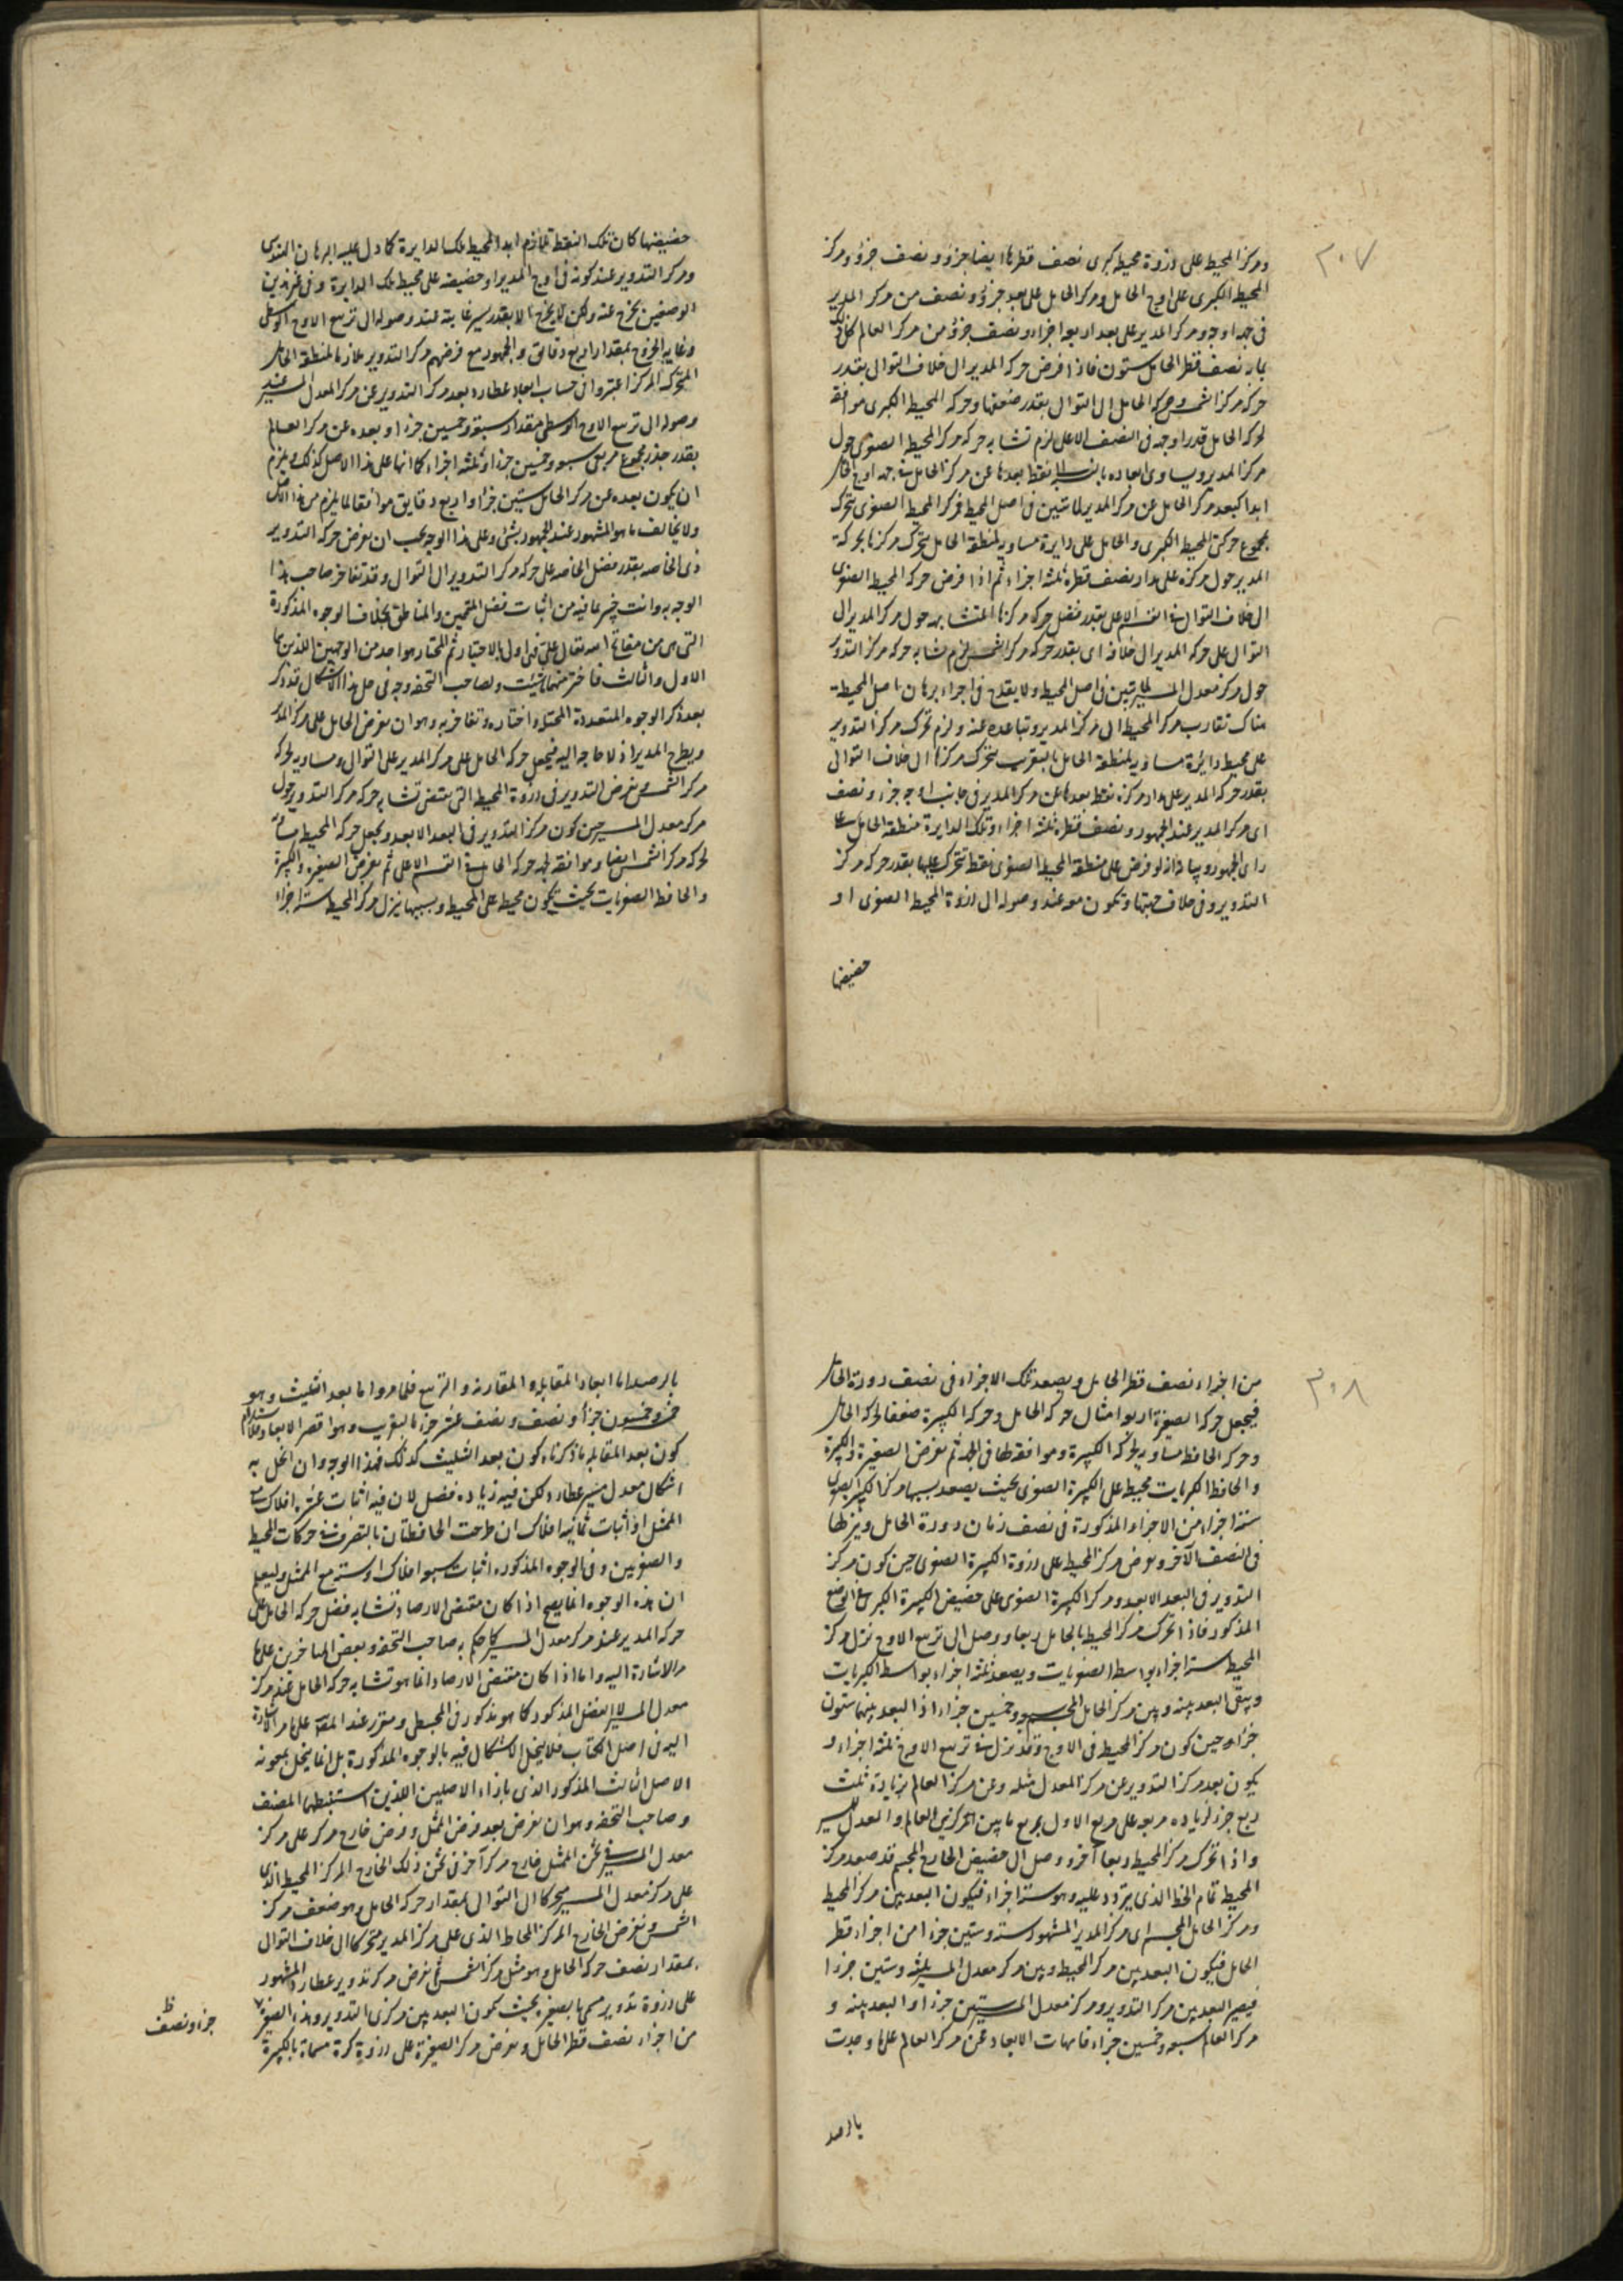 ٣٠٧
ومركز المحيط على ذروة محيطه كبرى نصف قطرها ايضا جزؤ ونصف جزؤ ومركز
المحيط الكبرى على اوج الحامل ومركز الحامل على بعد جزؤ ونصف من مركز المدير
فى جهة اوجه ومركز المدير على بعد اربعة اجزاء ونصف جزؤ من مركز العالم كل ذلك
بما به نصف قطر الحامل ستون فاذا فرض حركة المدير الى خلاف التوالى بقدر
حركة مركز الشمس وحركة الحامل الى التوالى بقدر ضعفها وحركة المحيط الكبرى موافقة
لحركة الحامل قدرا وجهة فى النصف الاعلى لزم تشابه حركة مركز المحيط الصغرى حول
مركز المدير ويساوى ابعاده بالنسبة الى نقطة بعدها عن مركز الحامل فى جهة اوج الحامل
ابدا كبعد مركز الحامل عن مركز المدير لما تبين فى اصل المحيط فمركز المحيط الصغرى يتحرك
بمجموع حركتى المحيط الكبرى والحامل على دايرة مساوية لمنطقة الحامل يتحرك مركزها بحركة
المدير حول مركزه على مدار نصف قطره ثلثة اجزاء ثم اذا فرض حركة المحيط الصغرى
الى خلاف التوالى فى القسم الاعلى بقدر فضل حركة مركزها المتشابهة حول مركز المدير الى
التوالى على حركة المدير الى خلافه اى بقدر حركة مركز الشمس لزم تشابه حركة مركز التدوير
حول مركز معدل المسير لما تبين فى اصل المحيط ولا يقدح فى اجراء برهان اصل المحيطة
هناك تقارب مركز المحيط الى مركز المدير وتباعده عنه ولزم تحرك مركز التدوير
على محيط دائرة مساوية لمنطقة الحامل بالتقريب يتحرك مركزها الى خلاف التوالى
بقدر حركة المدير على مدار مركزه نقطة بعدها عن مركز المدير فى جانب اوجه جزء ونصف
اى مركز المدير عند الجمهور ونصف قطره ثلثة اجزاء وتلك الدايرة منطقة الحامل على
راى الجمهور وبيانه انه لو فرض على منطقة المحيط الصغرى نقطة تتحرك عليها بقدر حركة مركز
التدوير وفى خلاف جهتها وتكون معه عند وصوله الى ذروة المحيط الصغرى او
حضيضها
حضيضها كان تلك النقطة تلازم ابدا لمحيط تلك الدايرة كما دل عليه البرهان الهندسى
ومركز التدوير عند كونه فى اوج المدير او حضيضه على محيط تلك الدايرة وفى غير هذين
الوضعين يخرج عنه ولكن لا يخرج الا بقدر يسير غايته عند وصوله الى تربيع الاوج الاوسطى
وغاية الخروج بمقدار اربع دقائق والجمهور مع فرضهم مركز التدوير ملازما لمنطقة الحامل
المتحركة المركز اعتبروا فى حساب ابعاد عطارد بعد مركز التدوير عن مركز المعدل المسير عند
وصوله الى تربيع الاوج الاوسطى بمقدار سبعة وخمسين جزءا وبعده عن مركز العالم
بقدر جذر مجموع مربعى سبعة وخمسين جزءا وثلثة اجزاء كما انها على هذا الاصل كذلك ويلزم
ان يكون بعده عن مركز الحامل ستين جزأ واربع دقايق موافقا لما يلزم من هذا الاصل
ولا يخالف ما هو المشهور عند الجمهور بشئ وعلى هذا الوجه يجب ان يفرض حركة التدوير
ذى الخاصه بقدر فضل الخاصة على حركة مركز التدوير الى التوالى وقد تفاخر صاحب هذا
الوجه به وانت خبير بما فيه من اثبات فضل المتممين والمناطق بخلاف الوجوه المذكورة
التى هى من مفاتح الله تعالى على فهى اولى بالاختيار ثم المختار هو واحد من الوجهين اللذين هما
الاول والثالث فاختر منهما ما شئت ولصاحب التحفة وجه فى حل هذا الاشكال قد ذكره
بعد ذكر الوجوه المتعددة المحتملة واختاره وتفاخر به وهو ان يفرض الحامل على مركز المدير
ويطرح المدير اذ لا حاجة اليه فيجعل حركة الحامل على مركز المدير على التوالى ومساوية لحركة
مركز الشمس ويفرض التدوير فى ذروة المحيط التى يقتضى تشابه حركة مركز التدوير حول
مركز معدل المسير حين كون مركز التدوير فى البعد الابعد ويجعل حركة المحيط مساوية
لحركة مركز الشمس ايضا وموافقة لجهة حركة الحامل فى القسم الاعلى ثم يفرض الصغيرة والكبيرة
والحافظ الصغريات بحيث يكون محيطة على المحيط وبسببها ينزل مركز المحيط ستة اجزاء
٣٠٨
من اجزاء نصف قطر الحامل ويصعد تلك الاجزاء فى نصف دورة الحامل
فيجعل حركة الصغيرة اربعة امثال حركة الحامل وحركة الكبيرة ضعفا لحركة الحامل
وحركة الحافظ مساوية لحركة الكبيرة وموافقة لها فى الجهة ثم يفرض الصغيرة والكبيرة
والحافظ الكبريات محيطة على الكبيرة الصغرى بحيث يصعد بسببها مركز الكبيرة الصغرى
ستة اجزاء من الاجزاء المذكورة فى نصف زمان دورة الحامل وينزلها
فى النصف الآخر ويفرض مركز المحيط على ذروة الكبيرة الصغرى حين كون مركز
التدوير فى البعد الابعد ومركز الكبيرة الصغرى على حضيض الكبيرة الكبرى فى الوضع
المذكور فاذا تحرك مركز المحيط بالحامل ربعا ووصل الى تربيع الاوج نزل مركز
المحيط ستة اجزاء بواسط الصغريات ويصعد ثلثة اجزاء بواسط الكبريات
ويبقى البعد بينه وبين مركز الحامل المجسم سبعة وخمسين جزءا اذ البعد بينهما ستون
جزءا وحين كون مركز المحيط فى الاوج وقد نزل فى تربيع الاوج ثلثة اجزاء و
يكون بعد مركز التدوير عن مركز المعدل مثله وعن مركز العالم بزيادة ثلث
ربع جزء لزيادة مربعه على مربع الاول بمربع ما بين المركزين العالم والمعدل المسير
واذا تحرك مركز المحيط ربعا آخر ووصل الى حضيض الخارج المجسم قد صعد مركز
المحيط تمام الخط الذى يتردد عليه وهو ستة اجزاء فيكون البعد بين مركز المحيط
ومركز الحامل المجسم اى مركز المدير المشهور ستة وستين جزءا من اجزاء قطر
الحامل فيكون البعد بين مركز المحيط وبين مركز معدل المسير ثلثة وستين جزءا
فيصير البعد بين مركز التدوير ومركز معدل المسير ستين جزءا والبعد بينه و
مركز العالم سبعة وخمسين جزءا فامهات الابعاد عن مركز العالم على ما وجدت
بالرصد
بالرصد اما ابعاد المقابلة والمقارنة والتربيع فلما مر واما بعد التثليث وهو
خمسة وخمسون جزأ ونصف ونصف عشر جزء بالتقريب وهو اقصر الابعاد فلاستلزام
كون بعد المقابلة ما ذكرناه كون بعد التثليث كذلك فهذا الوجه وان انحل به
اشكال معدل مسير عطارد لكن فيه زيادة فضل لان فيه اثبات عشرة افلاك سوى
الممثل او اثبات ثمانية افلاك ان طرحت الحافظتان بالتصرف فى حركات المحيط
والصغريين وفى الوجوه المذكورة اثبات سبعة افلاك او ستة مع الممثل وليعلم
ان هذه الوجوه انما يصح اذا كان مقتضى الارصاد تشابه فضل حركة الحامل على
حركة المدير عند مركز معدل المسير كما حكم به صاحب التحفة وبعض المتاخرين على ما
مر الاشارة اليه واما اذا كان مقتضى الارصاد انما هو تشابه حركة الحامل عند مركز
معدل المسير لا الفضل المذكور كما هو مذكور فى المجسطى ومقرر عند المصنف على ما مر الاشارة
اليه فى اصل الكتاب فلا ينحل الاشكال فيه بالوجوه المذكورة بل انما ينحل بمعونة
الاصل الثالث المذكور الذى بازاء الاصلين اللذين استنبطهما المصنف
وصاحب التحفة وهو ان يفرض بعد فرض الممثل وفرض خارج مركز على مركز
معدل المسير فى ثخن الممثل خارج مركز آخر فى ثخن ذلك الخارج المركز المحيط الذى
على مركز معدل المسير متحركا الى التوالى بمقدار حركة الحامل وهو ضعف مركز
الشمس ونفرض الخارج المركز المحاط الذى على مركز المدير متحركا الى خلاف التوالى
بمقدار نصف حركة الحامل وهو مثل مركز الشمس ثم نفرض مركز تدوير عطارد المشهور
على ذروة تدوير مسمى بالصغيرة بحيث يكون البعد بين مركزى التدوير وهذه الصغيرة
من اجزاء نصف قطر الحامل ونفرض مركز الصغيرة على ذروة كرة مسماة بالكبيرة
جزء ونصف